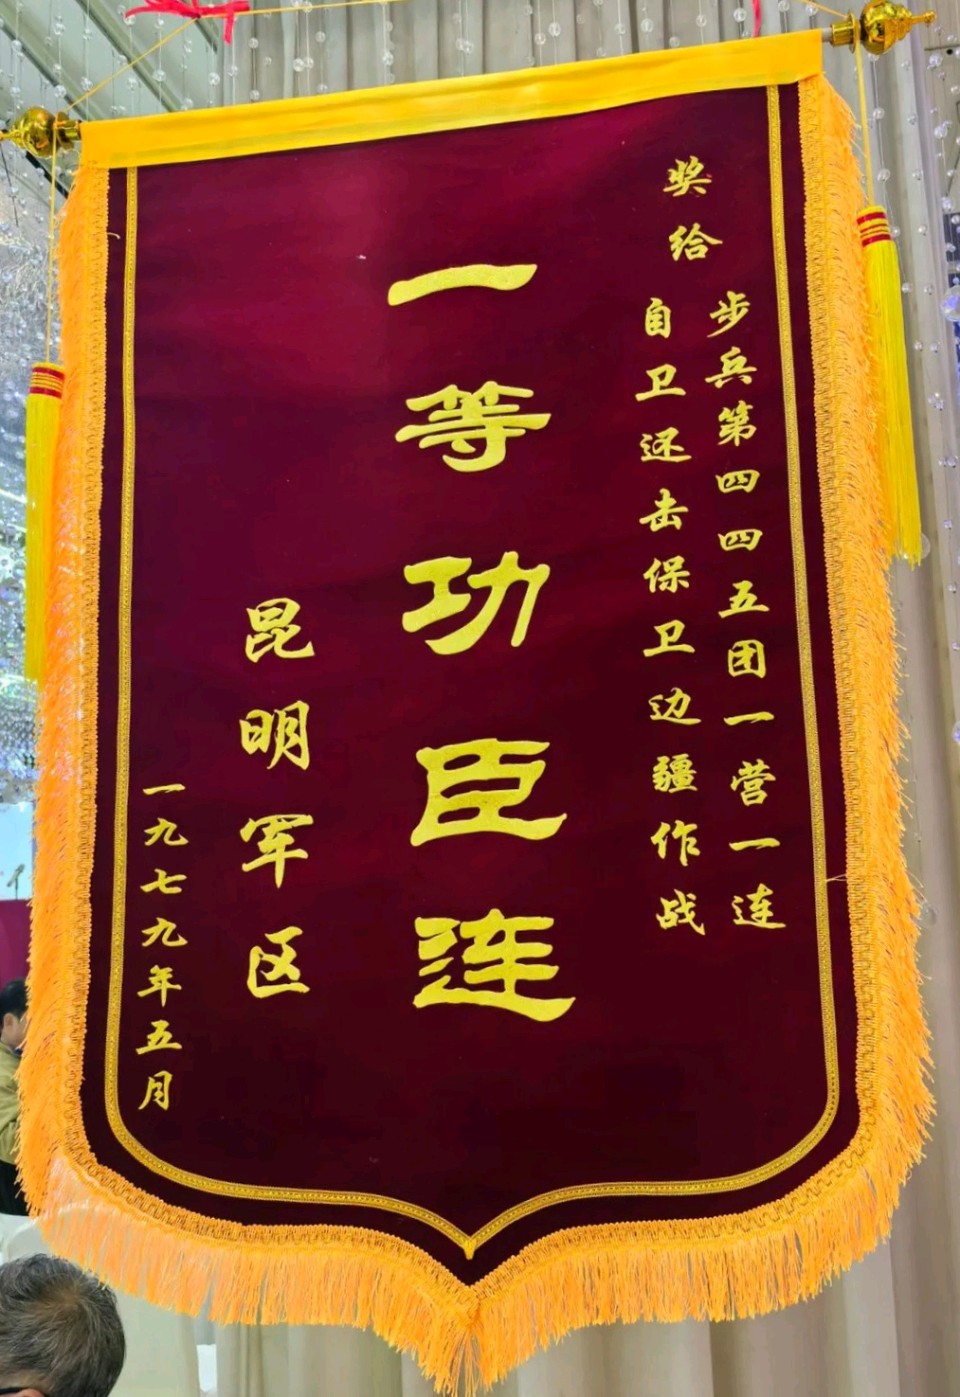 奖给
步兵第四四五团一营一连
自卫还击保卫边疆作战
一等功臣连
昆明军区
一九七九年五月